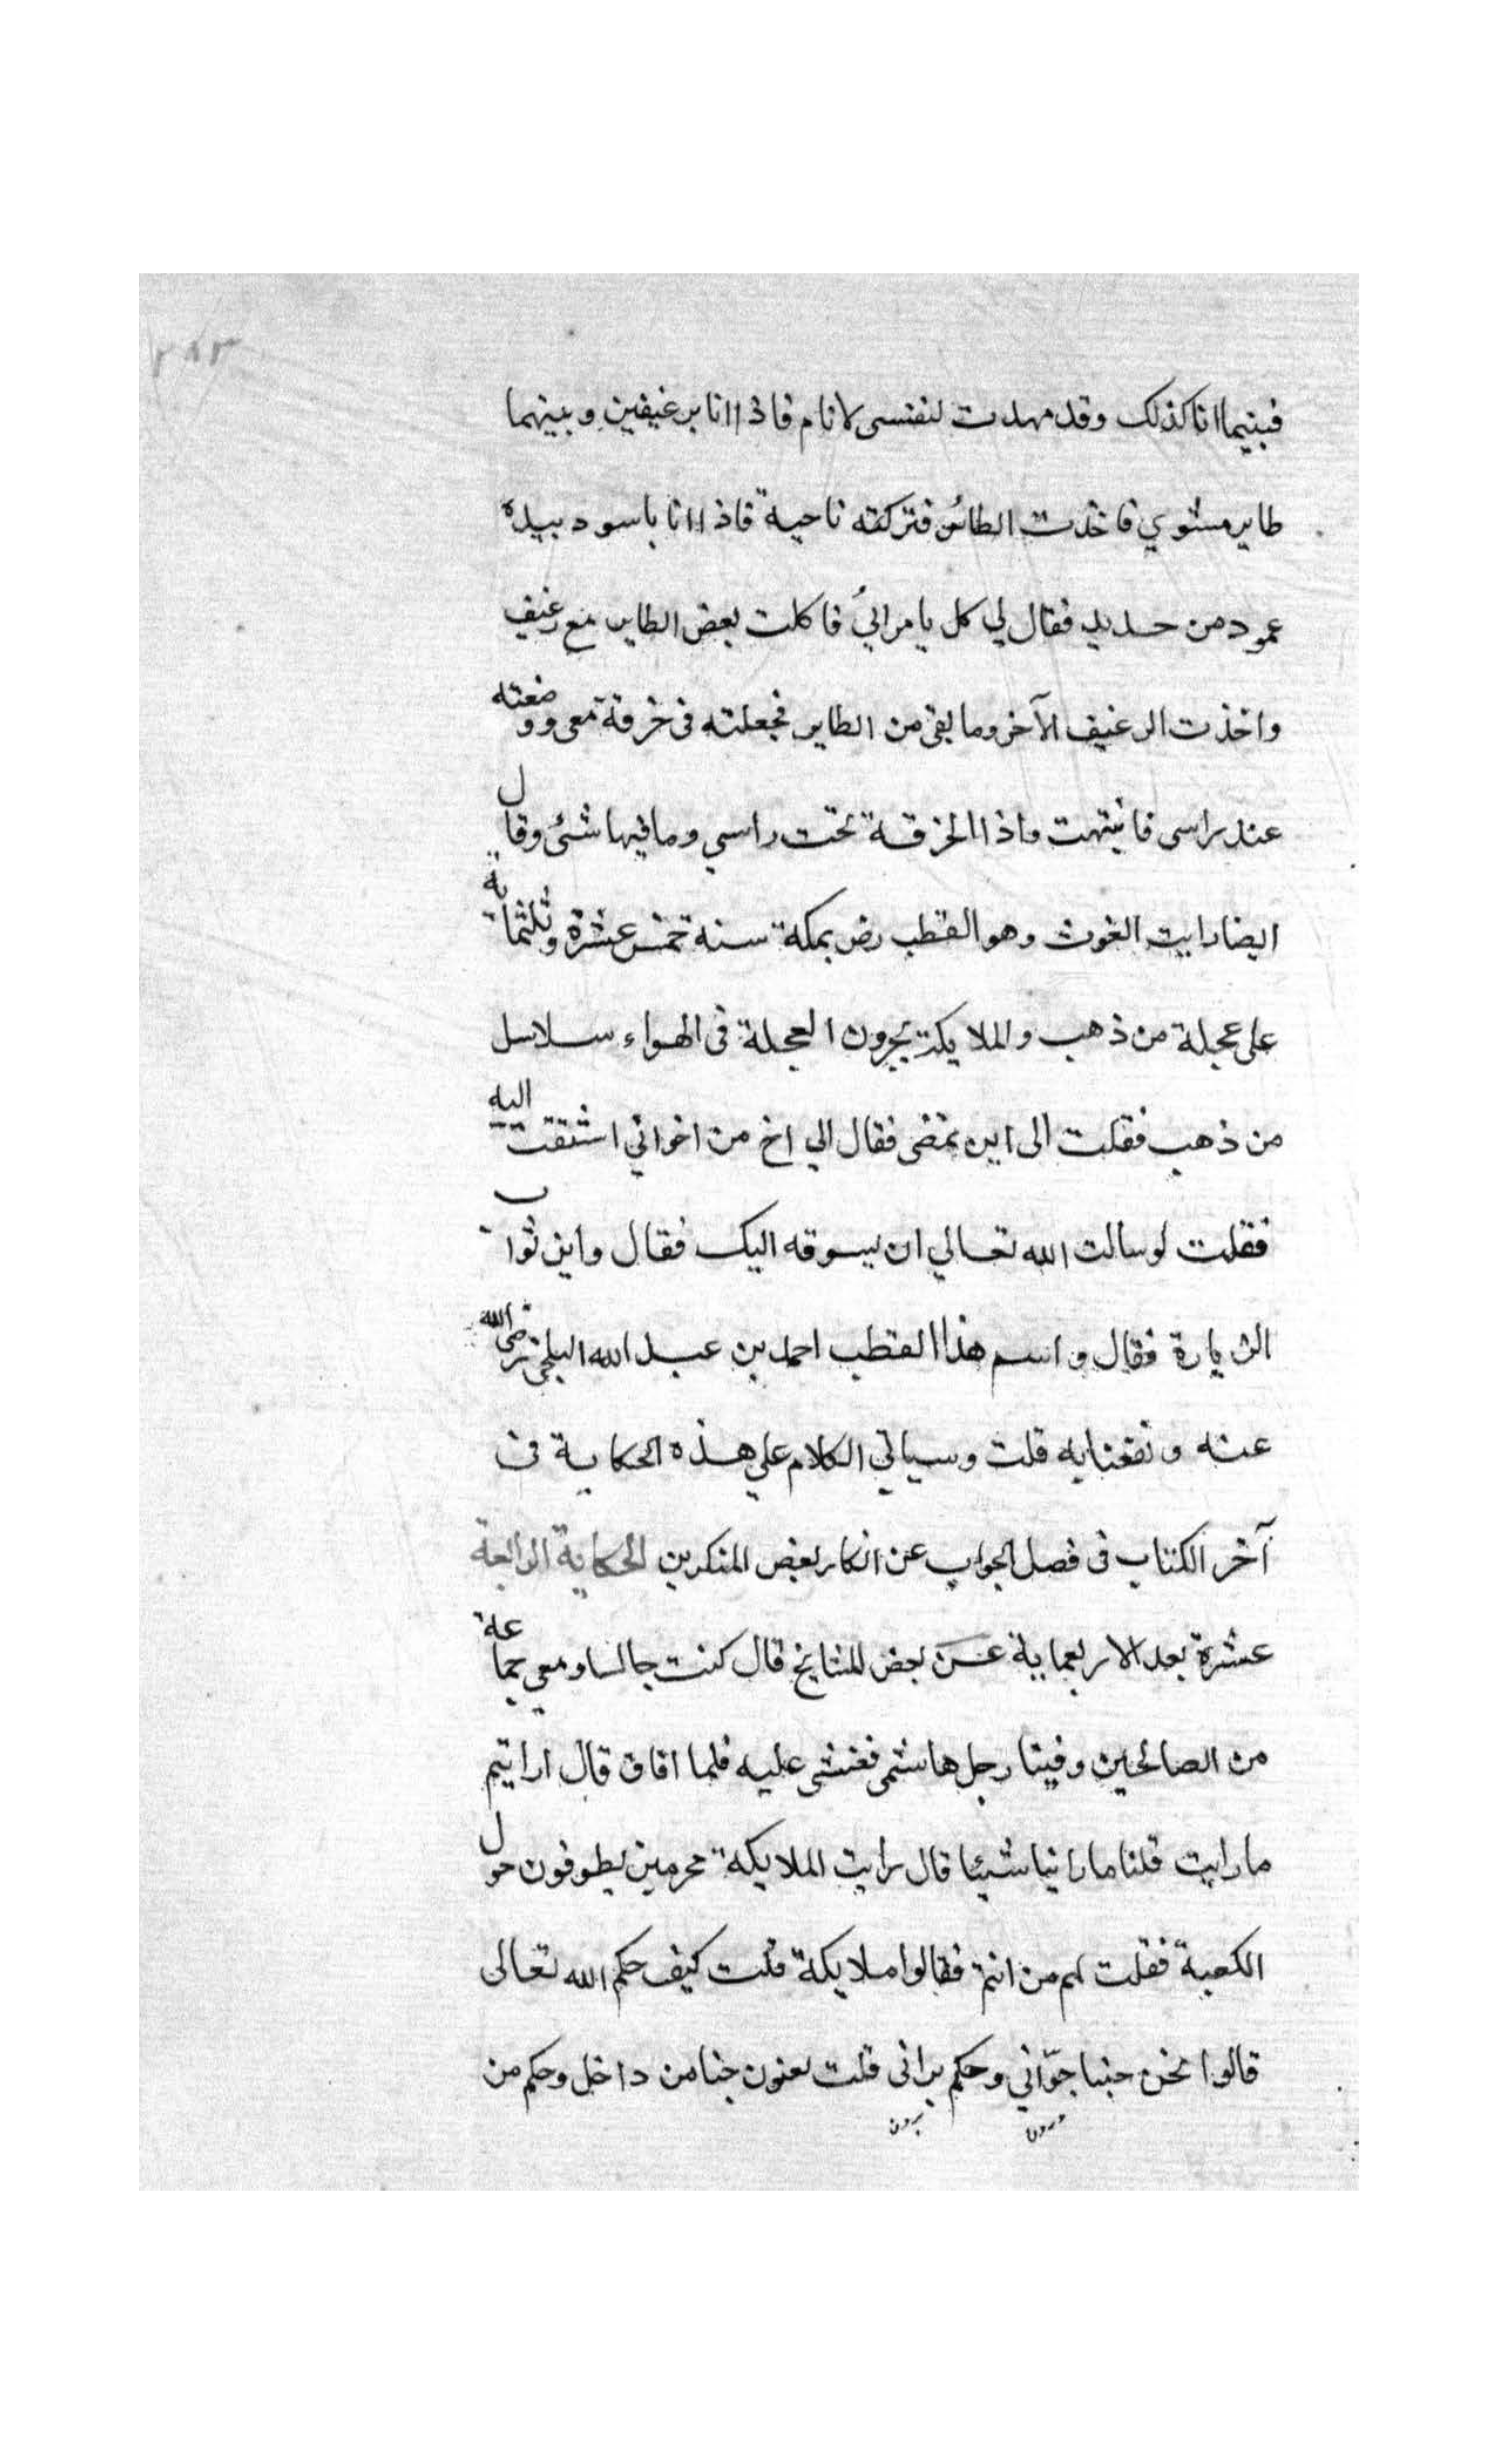 ٢٨٣
فبينما انا كذلك وقد مهدت لنفسي لانام فاذا انا برغيفين وبينهما
طاير مشوي فاخذت الطائر فتركته ناحية فاذا انا باسود بيده
عمود من حديد فقال لي كل يا مرائي فاكلت بعض الطاير مع رغيف
واخذت الرغيف الآخر وما بقي من الطاير فجعلته في خرقة معي ووضعته
عند راسي فانتبهت واذا الخرقة تحت راسي وما فيها شئ وقال
ايضا رايت الغوث وهو القطب رض بمكة سنة خمس عشرة وثلثماية
على عجلة من ذهب والملايكة يجرون العجلة في الهواء سلاسل
من ذهب فقلت الى اين تمضي فقال الي اخ من اخواني اشتقت اليه
فقلت لو سالت الله تعالي ان يسوقه اليك فقال واين ثواب
الزيارة فقال واسم هذا القطب احمد بن عبد الله البلخي رضي الله
عنه ونفعنا به قلت وسياتي الكلام علي هذه الحكاية في
آخر الكتاب في فصل الجواب عن انكار بعض المنكرين الحكاية الرابعة
عشرة بعد الاربعماية عن بعض المشايخ قال كنت جالسا ومعي جماعة
من الصالحين وفينا رجل هاشمي فغشي عليه فلما افاق قال ارايتم
ما رايت قلنا ما راينا شيئا قال رايت الملايكة محرمين يطوفون حول
الكعبة فقلت لهم من انتم فقالوا ملايكة قلت كيف حكم الله تعالى
قالوا نحن حبنا جوّاني وحكم براني قلت يعنون حبنا من داخل وحكم من
درون برون